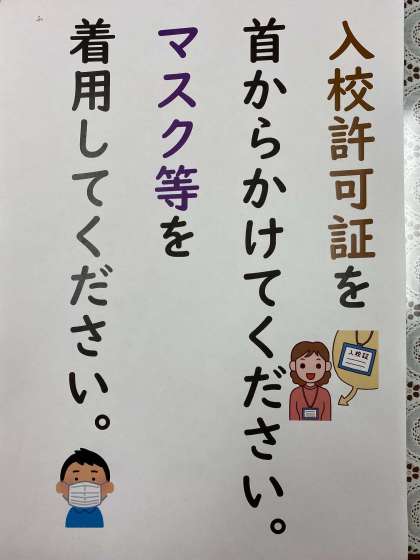 入校許可証を
首からかけてください。
マスク等を
着用してください。
入校証